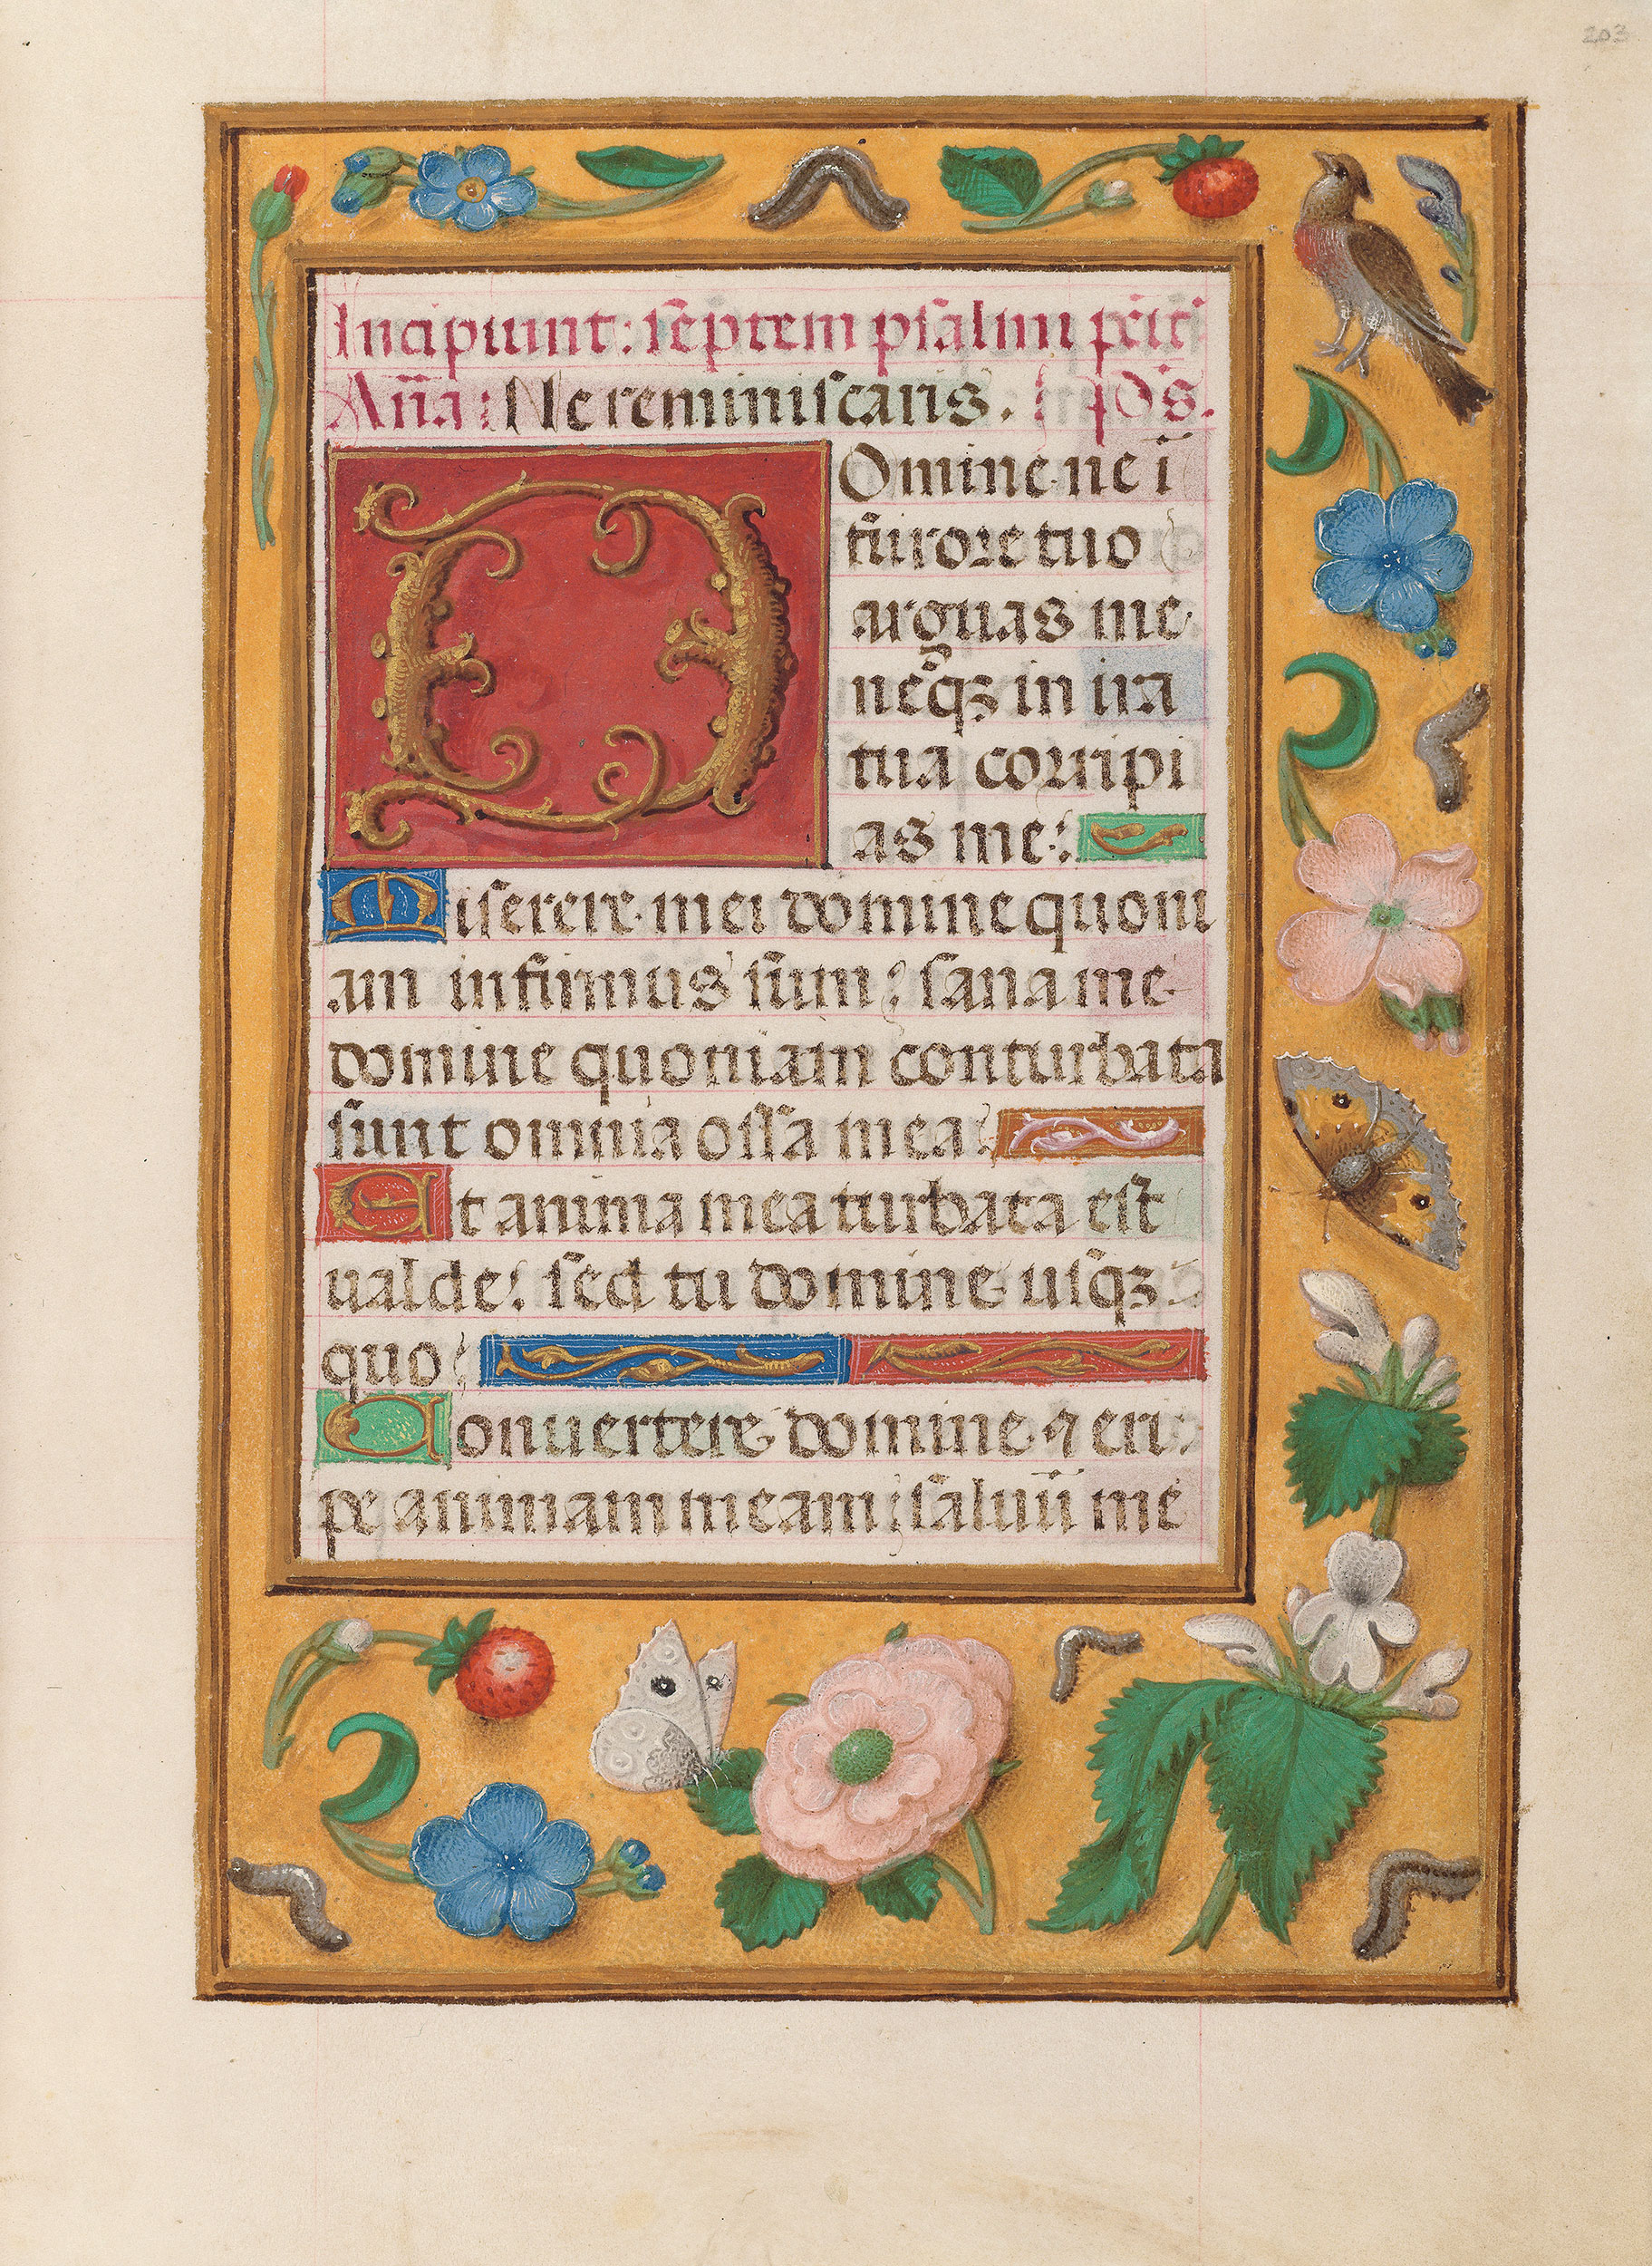 203
Incipiunt: septem psalmi
Aña: Ne reminiscaris. ps.
Domine ne ī
furore tuo
arguas me
neqȝ in ira
tua corripi
as me:
Miserere mei domine quoni
am infirmus sum: sana me
domine quoniam conturbata
sunt omnia ossa mea:
Et anima mea turbata est
ualde: sed tu domine usqȝ
quo:
Conuertere domine ⁊ eri:
pe animam meam: saluū me